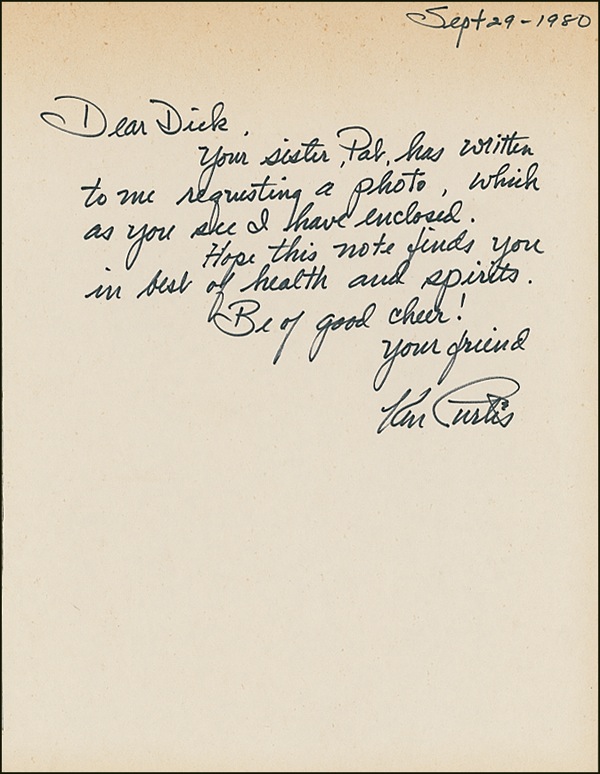 Sept 29-1980
Dear Dick,
Your sister, Pat, has written
to me requesting a photo, which
as you see I have enclosed.
Hope this note finds you
in best of health and spirits.
Be of good cheer!
Your friend
Ken Curtis